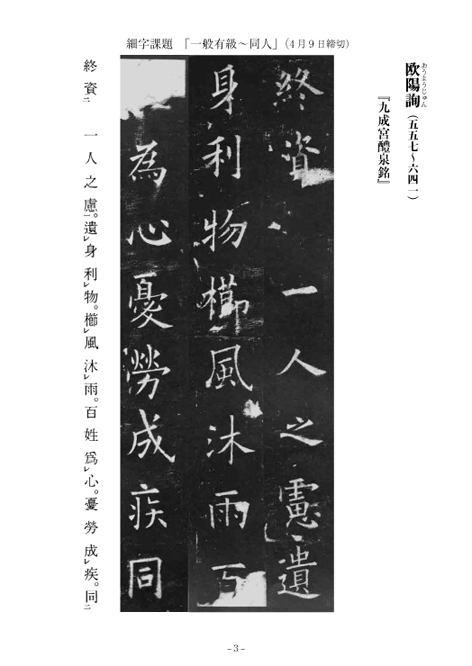 細字課題　「一般有級～同人」（4月9日締切）
おうようじゅん
欧陽詢（五五七～六四一）
『九成宮醴泉銘』
終資一人之慮遺
身利物櫛風沐雨百
為心憂勞成疾同
終資二　一人之慮。一遺レ身利レ物。櫛レ風沐レ雨。百姓爲レ心。憂勞成レ疾。同二
- 3 -